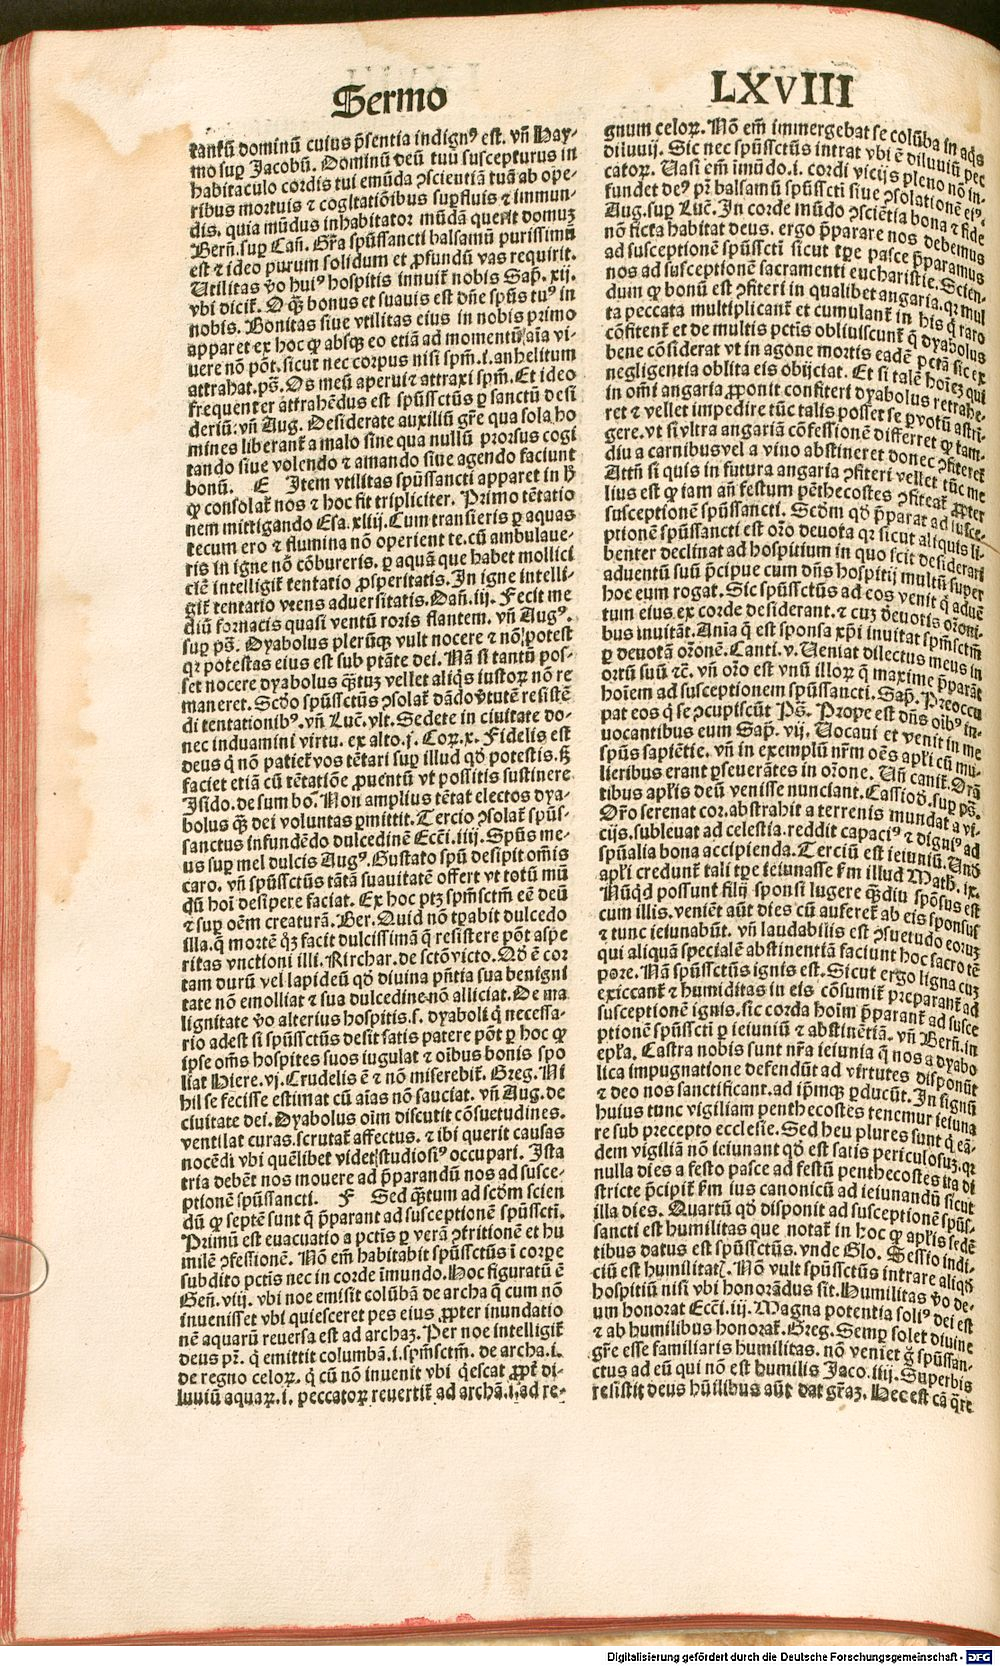 Sermo LXVIII
tantū dominū cuius p̄sentia indignꝰ est. vn̄ Hay-
mo suꝑ Jacobū. Dominū deū tuū suscepturus in
habitaculo cordis tui emūda ꝯscientiā tuā ab ope-
ribus mortuis ⁊ cogitatiōibus suꝑfluis ⁊ immun-
dis. quia mūdus inhabitator mūdā querit domuꝫ
Bern̄. suꝑ Can̄. Gr̄a spūssancti balsamū purissimū
est ⁊ ideo purum solidum et ꝓfundū vas requirit.
Utilitas v̄o huiꝰ hospitis innuit̄ nobis Sap̄. xij.
vbi dicit̄. O q̄ꝫ bonus et suauis est dn̄e spūs tuꝰ in
nobis. Bonitas siue vtilitas eius in nobis primo
apparet ex hoc ꝙ absqꝫ eo etiā ad momentū aīa vi-
uere nō pōt. sicut nec corpus nisi spm̄.i. anhelitum
attrahat. ps̄. Os meū aperui ⁊ attraxi spm̄. Et ideo
frequenter attrahēdus est spūssctūs ꝑ sanctū desi
deriū: vn̄ Aug. Desiderate auxiliū gr̄e qua sola ho
mines liberant̄ a malo sine qua nullū prorsus cogi
tando siue volendo ⁊ amando siue agendo faciunt
bonū. E Item vtilitas spūssancti apparet in h̄
ꝙ consolat̄ nos ⁊ hoc fit tripliciter. Primo tētatio
nem mittigando Esa. xliij. Cum transieris ꝑ aquas
tecum ero ⁊ flumina nō operient te. cū ambulaue-
ris in igne nō cōbureris. ꝑ aquā que habet mollici
ciē intelligit̄ tentatio ꝓsperitatis. In igne intelli-
git̄ tentatio vrens aduersitatis. Dan̄. iij. Fecit me
diū fornacis quasi ventū roris flantem. vn̄ Augꝰ.
suꝑ ps̄. Dyabolus plerūqꝫ vult nocere ⁊ nō potest
qꝛ potestas eius est sub ptāte dei. Nā si tantū pos-
set nocere dyabolus q̄ꝫtuꝫ vellet aliqs iustoꝝ nō re
maneret. Scd̄o spūssctūs ꝯsolat̄ dādo v̄tutē resistē
di tentationibꝰ. vn̄ Luc̄. vlt. Sedete in ciuitate do-
nec induamini virtu. ex alto. j. Coꝝ. x. Fidelis est
deus q̇ nō patiet̄ vos tētari suꝑ illud qd̄ potestis. sꝫ
faciet etiā cū tētatiōe ꝓuentū vt possitis sustinere
Isido. de sum bo. Non amplius tētat electos dya-
bolus q̄ꝫ dei voluntas ꝑmittit. Tercio ꝯsolat̄ spūs-
sanctus infundēdo dulcedinē Ecc̄i. iiij. Spūs me-
us suꝑ mel dulcis Augꝰ. Gustato spū desipit om̄is
caro. vn̄ spūssctūs tātā suauitatē offert vt totū mū
dū hoī desipere faciat. Ex hoc ptꝫ spm̄sctm̄ eē deū
⁊ suꝑ oēm creaturā. Ber. Quid nō tr̄abit dulcedo
illa. q̄ mortē q̄ꝫ facit dulcissimā q̄ resistere pōt aspe
ritas vnctioni illi. Richar. de sctō victo. Qd̄ ē cor
tam durū vel lapideū qd̄ diuina pn̄tia sua benigni
tate nō emolliat ⁊ sua dulcedine nō alliciat. De ma
lignitate v̄o alterius hospitis. s. dyaboli q̇ necessa-
rio adest si spūssctūs desit satis patere pōt ꝑ hoc ꝙ
ipse om̄s hospites suos iugulat ⁊ oībus bonis spo
liat Hiere. vj. Crudelis ē ⁊ nō miserebit̄. Greg. Ni
hil se fecisse estimat cū aīas nō sauciat. vn̄ Aug. de
ciuitate dei. Dyabolus oīm discutit cōsuetudines.
ventilat curas. scrutat̄ affectus. ⁊ ibi querit causas
nocēdi vbi quēlibet videt studiosiꝰ occupari. Ista
tria debēt nos mouere ad p̄parandū nos ad susce-
ptionē spūssancti. F Sed q̄ꝫtum ad scd̄m scien
dū ꝙ septē sunt q̄ p̄parant ad susceptionē spūssctī.
Primū est euacuatio a pctīs ꝑ verā ꝯtritionē et hu
milē ꝯfessionē. Nō em̄ habitabit spūssctūs ī corꝑe
subdito pctīs nec in corde īmundo. Hoc figuratū ē
Gen̄. viij. vbi noe emisit colūbā de archa q̄ cum nō
inuenisset vbi quiesceret pes eius ꝓpter inundatio
nē aquarū reuersa est ad archaꝫ. Per noe intelligit̄
deus pr̄. q̇ emittit columbā. i. spm̄sctm̄. de archa. i.
de regno celoꝝ. q̇ cū nō inuenit vbi q̇escat ꝓpt̄ di-
luuiū aquaꝝ. i. peccatoꝝ reuertit̄ ad archā. i. ad re-
gnum celoꝝ. Nō em̄ immergebat se colūba in aq̄s
diluuij. Sic nec spūssctūs intrat vbi ē diluuiū pec
catoꝝ. Uasi em̄ īmūdo. i. cordi vicijs pleno nō in-
fundet deꝰ pr̄ balsamū spūssctī siue ꝯsolationē eiꝰ.
Aug. suꝑ Luc̄. In corde mūdo ꝯsciētia bona ⁊ fide
nō ficta habitat deus. ergo p̄parare nos debemus
ad susceptionē spūssctī sicut tꝑe pasce p̄paramus
nos ad susceptionē sacramenti eucharistie. Scien-
dum ꝙ bonū est ꝯfiteri in qualibet angaria. qꝛ mul
ta peccata multiplicant̄ et cumulant̄ in his q̇ raro
cōfitent̄ et de multis pctīs obliuiscunt̄ q̄ dyabolus
bene cōsiderat vt in agone mortis eadē pctā sic ex
negligentia oblita eis obijciat. Et si talē hoīeꝫ qui
in om̄i angaria ꝓponit confiteri dyabolus retrahe-
ret ⁊ vellet impedire tūc talis posset se ꝑ votū astri-
gere. vt si vltra angariā cōfessionē differret ꝙ tam-
diu a carnibus vel a vino abstineret donec ꝯfiteret̄
Attn̄ si quis in futura angaria ꝯfiteri vellet tūc me
lius est ꝙ iam an̄ festum pēthecostes ꝯfiteat̄ ꝓpter
susceptionē spūssancti. Scd̄m qd̄ p̄parat ad susce-
ptionē spūssancti est or̄o deuota qꝛ sicut aliquis li-
benter declinat ad hospitium in quo scit desiderari
aduentū suū p̄cipue cum dn̄s hospitij multū super
hoc eum rogat. Sic spūssctūs ad eos venit q̇ aduē
tum eius ex corde desiderant. ⁊ cuꝫ deuotis or̄oni-
bus inuitāt. Anīa q̄ est sponsa xp̄i inuitat spm̄sctm̄
ꝑ deuotā or̄onē. Canti. v. Ueniat dilectus meus in
ortū suū ⁊c̄. vn̄ or̄o est vnū illoꝝ q̄ maxime p̄parāt
hoīem ad susceptionem spūssancti. Sap̄. Preoccu
pat eos q̇ se ꝯcupiscūt Ps̄. Prope est dn̄s oībꝰ in-
uocantibus eum Sap̄. vij. Uocaui et venit in me
spūs sapiētie. vn̄ in exemplū nr̄m oēs apl̄i cū mu-
lieribus erant ꝑseuerātes in or̄one. Un̄ canit̄. Orā
tibus apl̄is deū venisse nunciant. Cassiod̄. suꝑ ps̄.
Or̄o serenat cor. abstrahit a terrenis mundat a vi-
cijs. subleuat ad celestia. reddit capaciꝰ ⁊ digniꝰ ad
spūalia bona accipienda. Terciū est ieiuniū. Und̄
apl̄i credunt̄ tali tꝑe ieiunasse fm̄ illud Math. ix.
Nūqd̄ possunt filij sponsi lugere q̄ꝫdiu spōsus est
cum illis. veniēt aūt dies cū auferet̄ ab eis sponsus
⁊ tunc ieiunabūt. vn̄ laudabilis est ꝯsuetudo eoruꝫ
qui aliquā specialē abstinentiā faciunt hoc sacro tē
pore. Nā spūssctūs ignis est. Sicut ergo ligna cuꝫ
exiccant̄ ⁊ humiditas in eis cōsumit̄ preparant̄ ad
susceptionē ignis. sic corda hoīm p̄parant̄ ad susce
ptionē spūssctī ꝑ ieiuniū ⁊ abstinētiā. vn̄ Bern̄. in
epl̄a. Castra nobis sunt nr̄a ieiunia q̄ nos a dyabo
lica impugnatione defendūt ad virtutes disponūt
⁊ deo nos sanctificant. ad ip̄mqꝫ ꝑducūt. In signū
huius tunc vigiliam penthecostes tenemur ieiuna
re sub precepto ecclesie. Sed heu plures sunt q̇ eā-
dem vigiliā nō ieiunant qd̄ est satis periculosuꝫ. qꝛ
nulla dies a festo pasce ad festū penthecostes ita di
stricte p̄cipit̄ fm̄ ius canonicū ad ieiunandū sicut
illa dies. Quartū qd̄ disponit ad susceptionē spūs-
sancti est humilitas que notat̄ in hoc ꝙ apl̄is sedē
tibus datus est spūssctūs. vnde Glo. Sessio indi-
ciū est humilitatꝭ. Nō vult spūssctūs intrare aliqd̄
hospitiū nisi vbi honorādus sit. Humilitas v̄o de-
um honorat Ecc̄i. iij. Magna potentia soliꝰ dei est
⁊ ab humilibus honorat̄. Greg. Semꝑ solet diuine
gr̄e esse familiaris humilitas. nō veniet ḡ spūssan-
ctus ad eū qui nō est humilis Jaco. iiij. Superbis
resistit deus hūilibus aūt dat gr̄aꝫ. Hec est cā q̄re
Digitalisierung gefördert durch die Deutsche Forschungsgemeinschaft - DFG